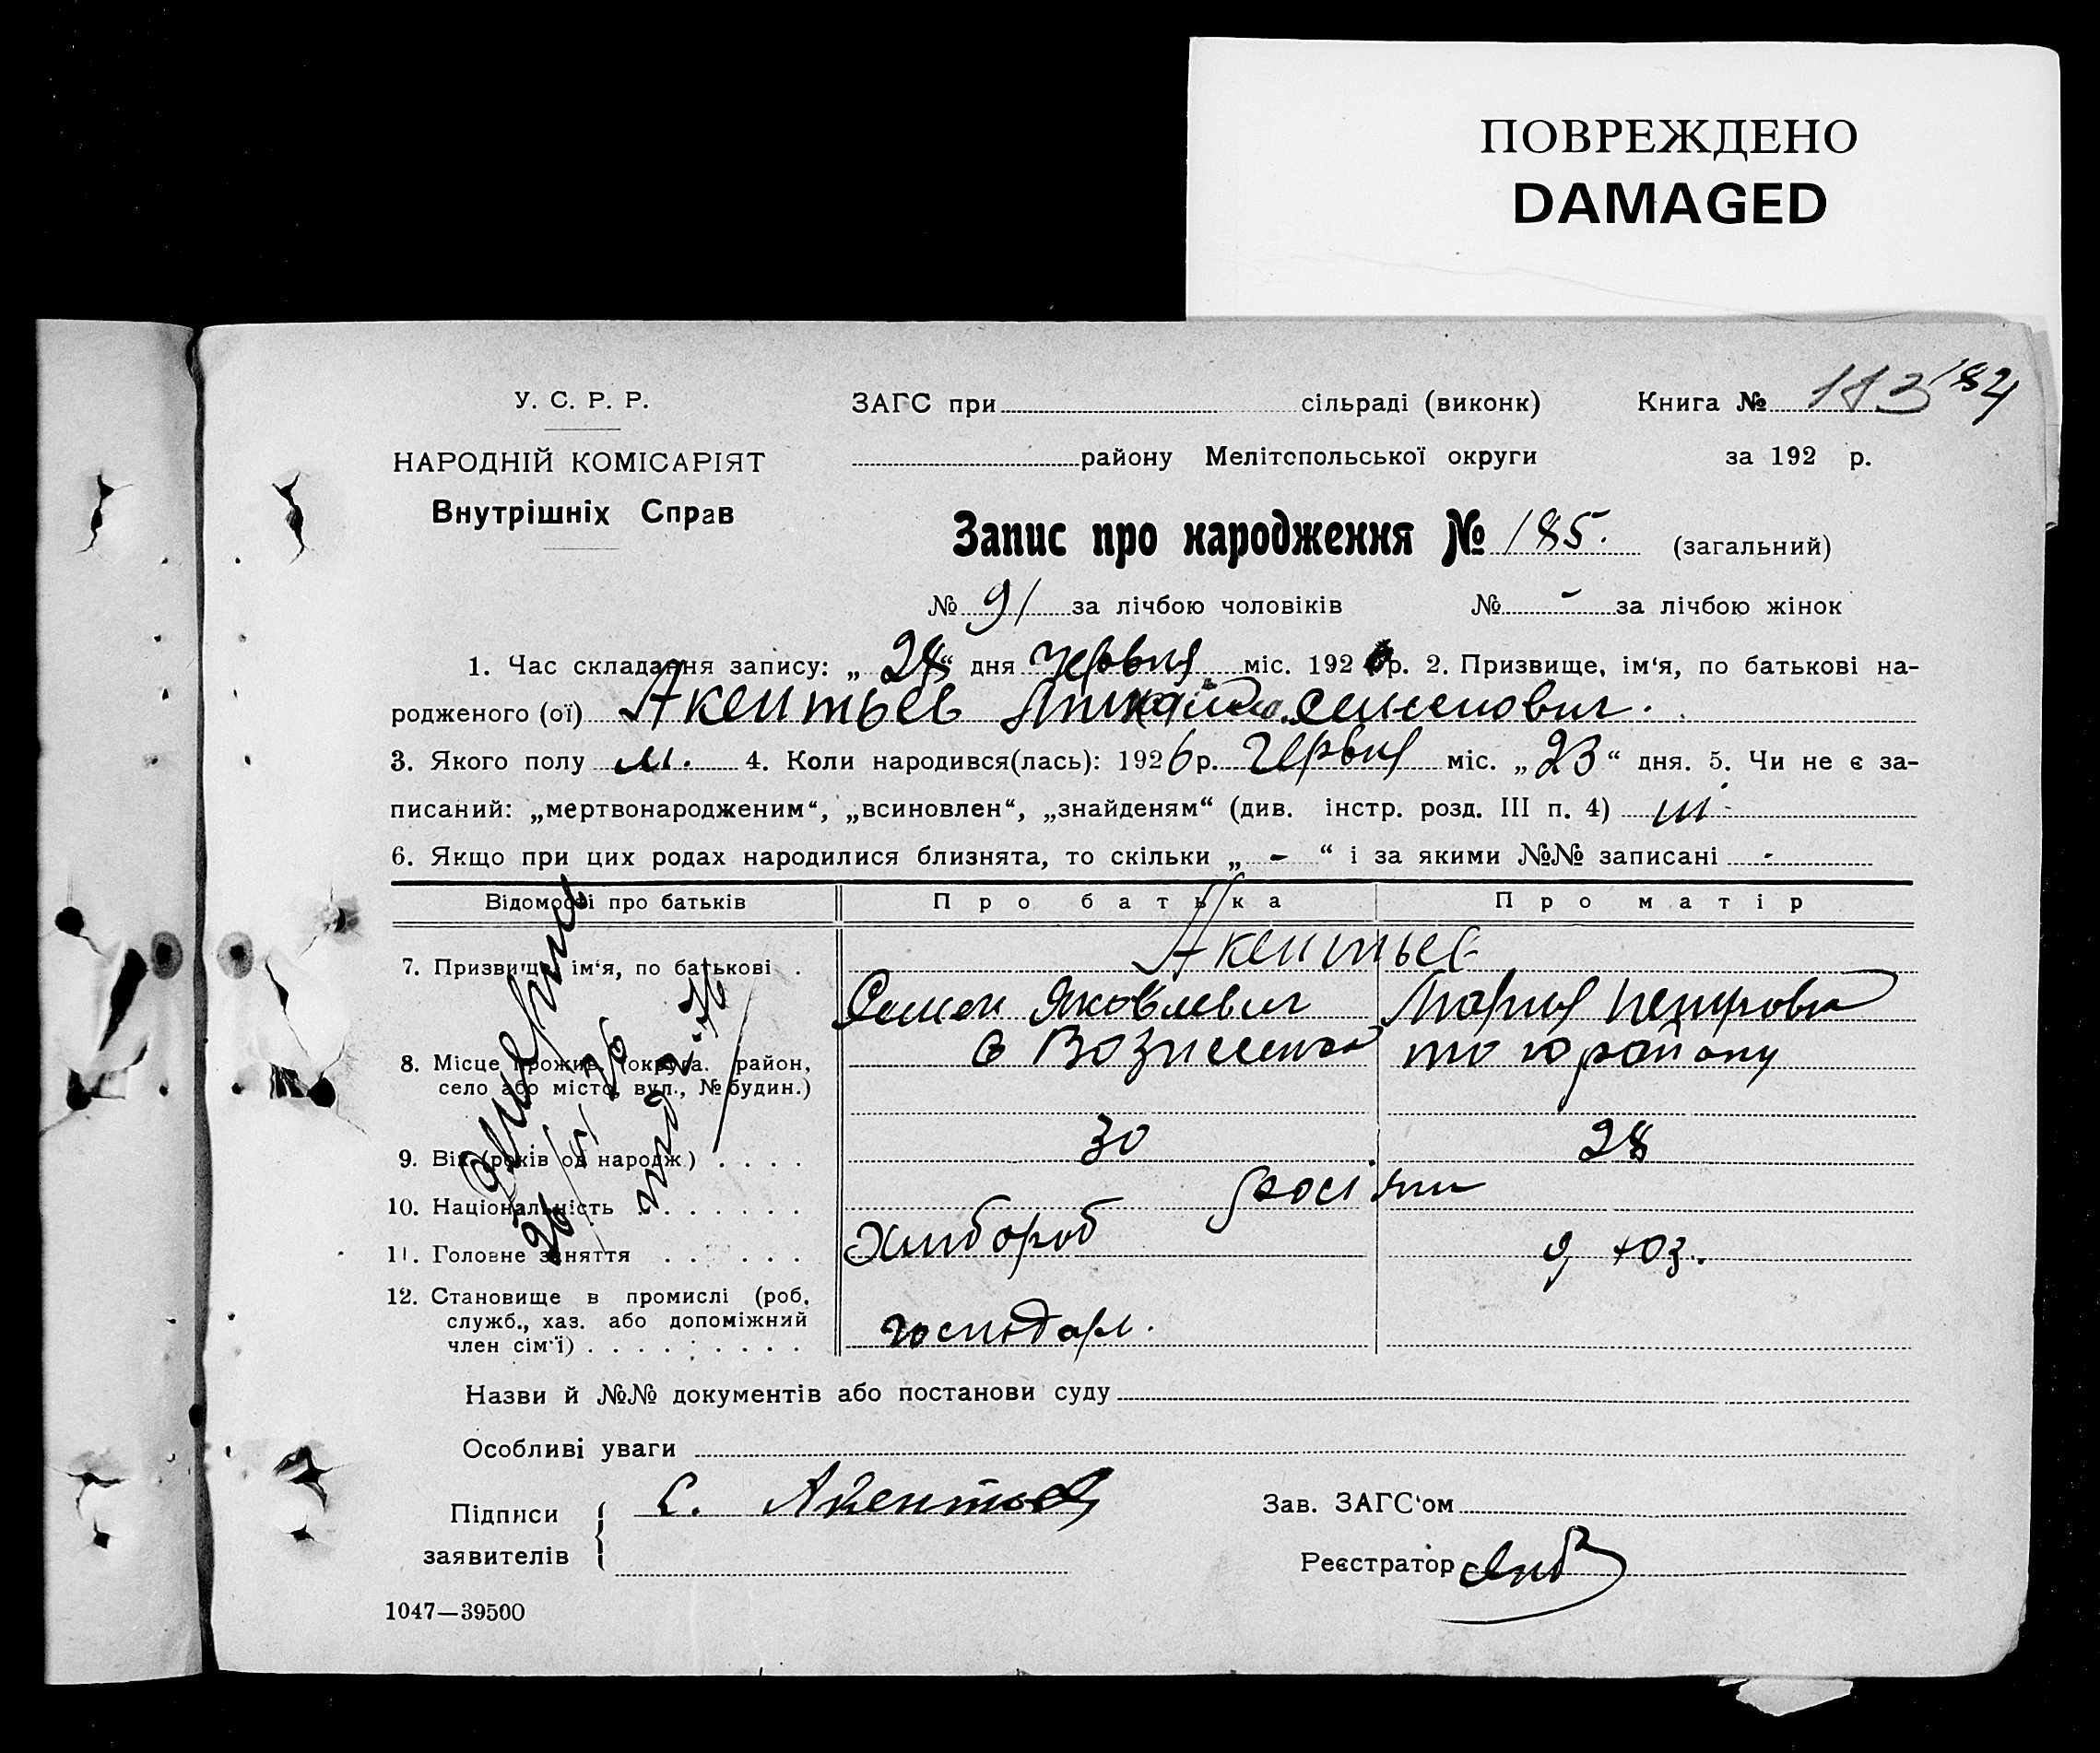 ПОВРЕЖДЕНО
DAMAGED
У. С. Р. Р.
НАРОДНІЙ КОМІСАРІЯТ
Внутрішніх Справ
ЗАГС при сільраді (виконк) Книга № 183 184
району Мелітспольської округи за 192 р.
Запис про народження № 185. (загальний)
№ 91 за лічбою чоловіків № - за лічбою жінок
1. Час складання запису: „ 28 “ дня червня міс. 192 6 р. 2. Призвище, ім‘я, по батькові на-
родженого (ої) Акентьев Семенович.
3. Якого полу м. 4. Коли народився(лась): 1926 р. Червня міс. „ 23 “ дня. 5. Чи не є за-
писаний: „мертвонародженим“, „всиновлен“, „знайденям“ (див. інстр. розд. III п. 4) ні
6. Якщо при цих родах народилися близнята, то скільки „ - “ і за якими №№ записані -
Відомості про батьків Про батька Про матір
7. Призвище, ім‘я, по батькові . Акентьев
Семен Яковлевич Мария Петровна
8. Місце прожив. (округа. район, с Вознесенка того району
село або місто, вул., № будин.)
9. Вік (років од народж) . . . . 30 28
10. Національність . . . . . . . росіяни
11. Головне заняття . . . . . . Хлібороб д хоз.
12. Становище в промислі (роб.
служб., хаз. або допоміжний
член сім‘ї) . . . . . . . . . . господар.
Назви й №№ документів або постанови суду
Особливі уваги
Підписи
заявителів
С. Акентьев
Зав. ЗАГС‘ом
Реєстратор
1047—39500